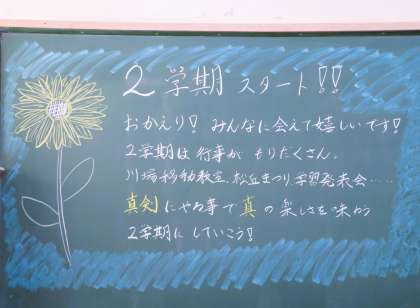 ２学期 スタート!!
おかえり! みんなに会えて嬉しいです!
２学期は行事がもりだくさん、
川場移動教室、松丘まつり、学習発表会……
真剣にやる事で真の楽しさを味わう
２学期にしていこう!